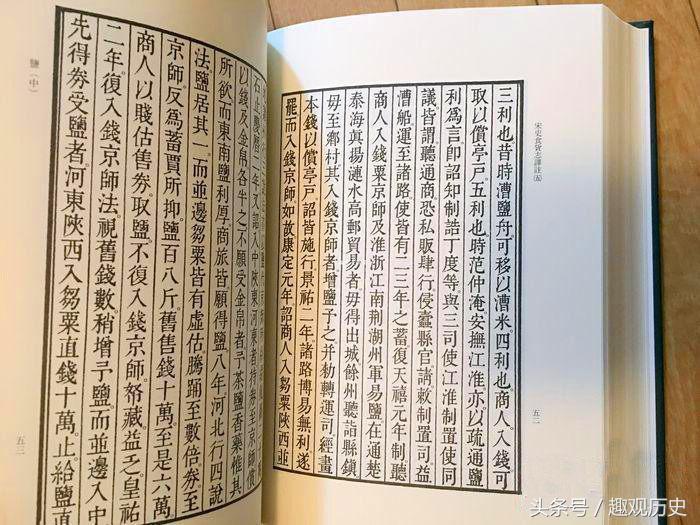 宋史食貨志譯註(五)
三利也。昔時漕鹽舟。可移以漕米。四利也。商人入錢。可
取以償亭戸。五利也。時范仲淹安撫江淮。亦以疏通鹽
利爲言。卽詔知制誥丁度等。與三司使江淮制置使同
議。皆謂聽通商。恐私販肆行。侵蠹縣官。請敕制置司益
漕船運至諸路。使皆有二三年之蓄。復天禧元年制。聽
商人入錢粟京師及淮浙江南荆湖州軍易鹽。在通楚
泰海眞揚漣水高郵貿易者。毋得出城。餘州聽詣縣鎭。
毋至鄉村。其入錢京師者增鹽予之。幷勅轉運司經畫
本錢以償亭戸。詔皆施行。景祐二年。諸路博易無利。遂
罷。而入錢京師如故。康定元年。詔商人入芻粟陝西並
五二
石止。慶曆二年。又詔入中陝東河東者。持券至京師。償
以錢及金帛各半之。不願受金帛者。予茶鹽香藥。惟其
所欲。而東南鹽利厚。商旅皆願得鹽。八年。河北行四說
法。鹽居其一。而並邊芻粟。皆有虛估。騰踊至數倍。券至
京師。反爲蓄賈所抑。鹽百八斤。舊售錢十萬。至是六萬。
商人以賤估售券取鹽。不復入錢京師。帑藏益乏。皇祐
二年。復入錢京師法。視舊錢數。稍增予鹽。而並邊入中
先得券受鹽者。河東陝西入芻粟直錢十萬。止給鹽直
鹽(中)
五三
头条号 / 趣观历史